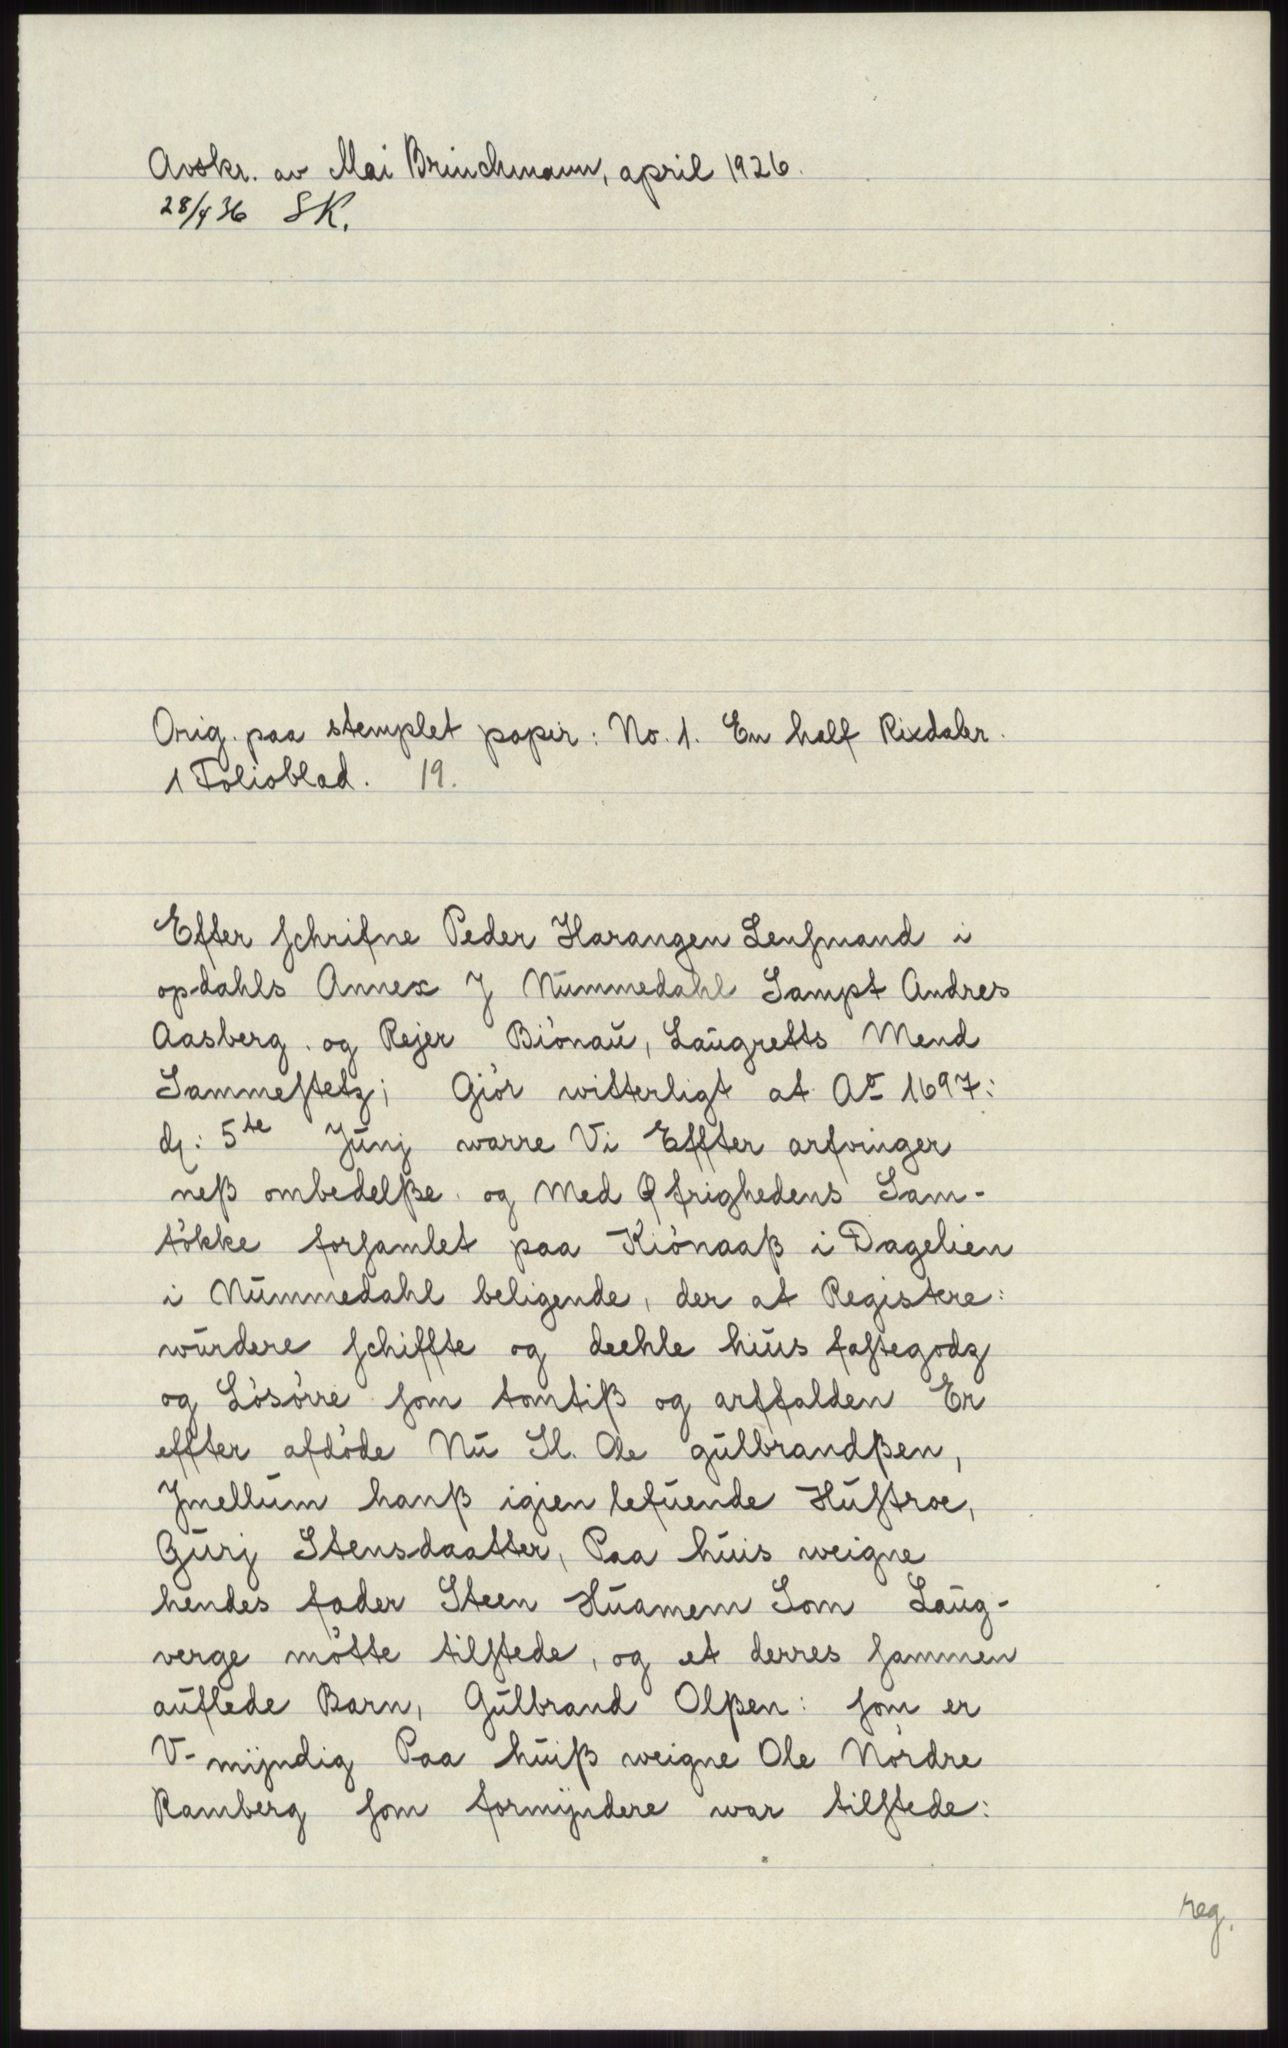 Avskr. av Mai Brinchmann, april 1926.
28/4 36 SK.
Orig. paa stemplet papir: No. 1. En half Rixdaler.
1 Folioblad. 19.
Efter schrifne Peder Harangen Lensmand i
opdahls Annex J Nummedahl Sampt Andres
Aasberg. og Rejer Biònaù, Laùgretts Mend
Sammestetz; Giòr witterligt at Ao 1697:
d: 5te Jùnj warre Vi Effter arfvinger
neß ombedelße. og Med Øfrighedens Sam-
tòkke forsamlet paa Kiònaaß i Dagelien
i Nùmmedahl beligende, der at Registere:
wùrdere schiffte og deehle hùis fastegodz
og Lòsòrre som tomtiß og arffalden Er
effter afdòde Nù Sl. Ole gùlbrandßen,
Jmellùm hanß igien lefùende Hùstroe,
Gùrj Stensdaatter, Paa hùis weigne
hendes fader Steen Hùamem Som Laùg-
verge mòtte tilstede, og et derres sammen
aùflede Barn, Gùlbrand Olßen: som er
V-mijndig Paa hùiß weigne Ole Nòrdre
Ramberg som formijndere war tilstede:
reg.